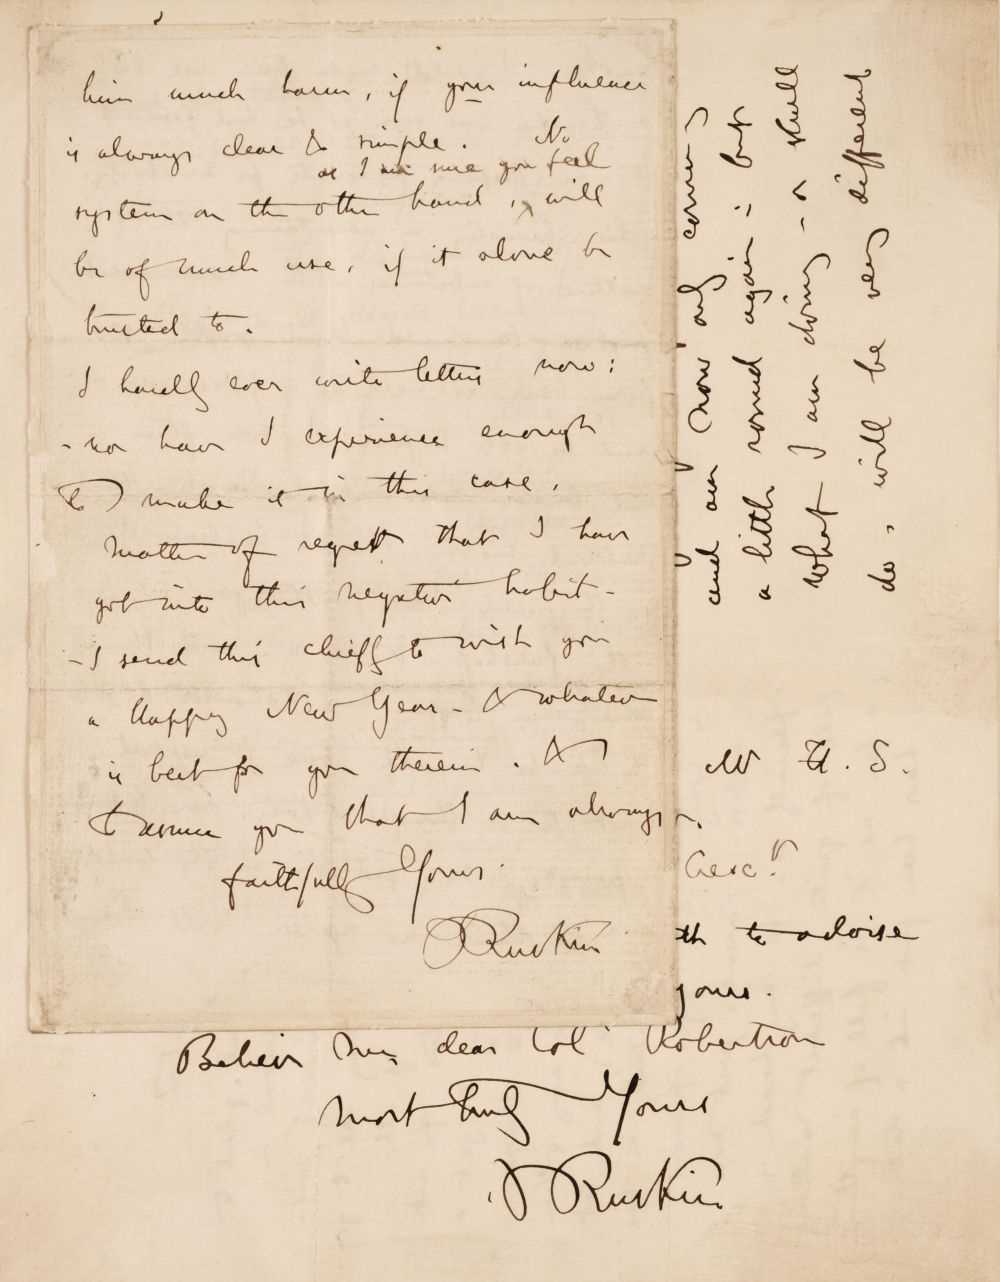 him much harm, if your influence
is always clear & simple. No
as I am sure you feel
system on the other hand, will
be of much use, if it alone be
trusted to.
I hardly ever write letters now:
- nor have I experience enough
to make it in this case,
matter of regret that I have
got into this negative habit -
- I send this chiefly to wish you
a Happy New Year - & whatever
is best for you therein. &
to assure you that I am always
faithfully Yours
J Ruskin
and am now only coming
a little round again: but
what I am doing - or shall
do, will be very different
S.
th to advise
yours.
Believe me, dear Col Robertson
Most truly Yours
J Ruskin